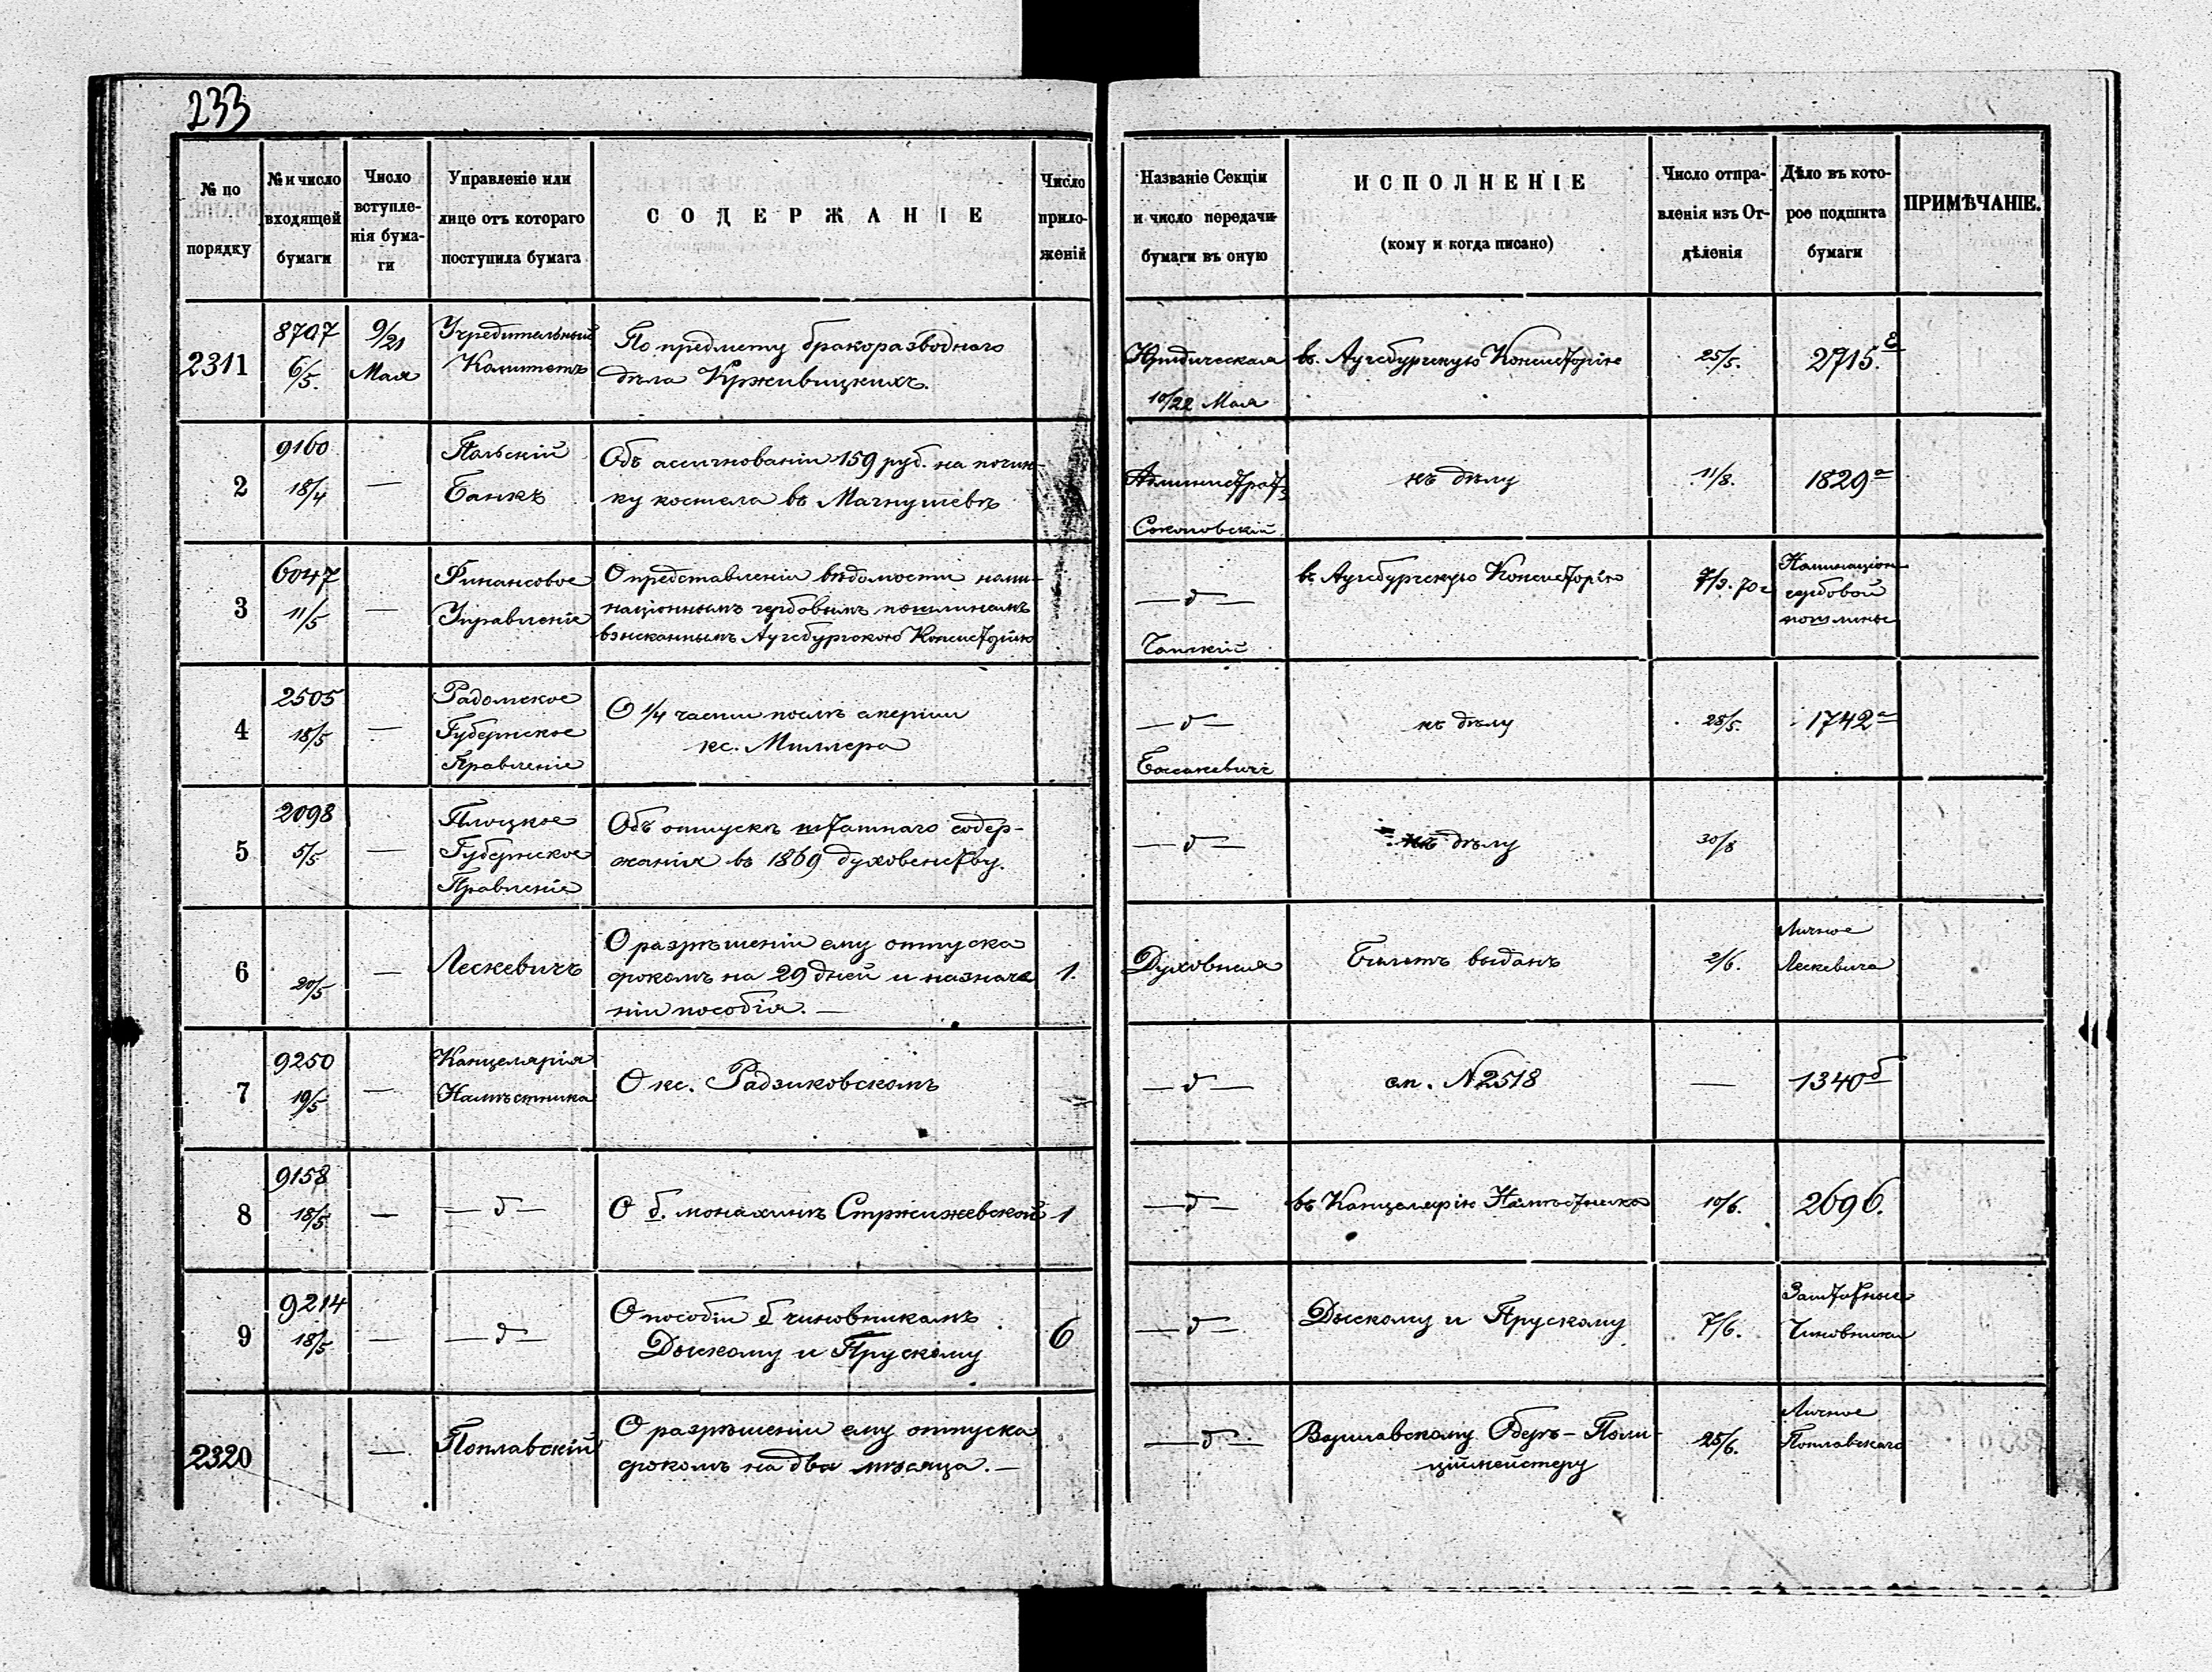 233
№ по порядку
№ и число входящей бумаги
Число вступленія бумаги
Управленіе или лице отъ котораго поступила бумага
СОДЕРЖАНІЕ
Число приложеній
Названіе Секціи и число передачи бумаги въ оную
ИСПОЛНЕНІЕ
(кому и когда писано)
Число отправленія изъ Отдѣленія
Дѣло въ которое подшита бумаги
ПРИМѢЧАНІЕ.
2311
8707
6/5.
9/21
Мая
Учредительный
Комитетъ
По предмету бракоразводнаго
дѣла Крживицкихъ.
Юридическая
10/22 Мая
въ Аугсбургскую Консисторію
25/5.
2715.
2
9160
18/4
—
Польскій
Банкъ
Объ ассигнованіи 159 руб. на почин-
ку костела въ Магнушевѣ
Соколовскій
къ дѣлу
11/8.
1829 а
3
6047
11/5
—
Финансовое
Управленіе
О представленіи вѣдомости номи-
націоннымъ гербовымъ пошлинамъ
взысканнымъ Аугсбургскою Консисторіею
— д —
въ Аугсбургскую Консисторію
7/3. 70 г
Номинаціон
гербовой
пошлины
4
2505
18/5
—
Радомское
Губернское
Правленіе
О 1/4 части
кс. Миллера
— д —
къ дѣлу
28/5.
1742 а
5
2098
5/5
—
Плоцкое
Губернское
Правленіе
Объ отпускѣ штатнаго содер-
жанія въ 1869 духовенству.
— д —
къ дѣлу
30/8
6
20/5
—
Лескевичъ
О разрѣшеніи ему отпуска
срокомъ на 29 дней и назначе
ніи пособія. —
1.
Духовная
Билетъ выданъ
2/6.
Личное
Лескевича
7
9250
19/5
—
Канцелярія
Намѣстника
О кс. Радзиковскомъ
— д —
см. N 2518
—
1340 б
8
9158
18/5
—
— д —
О б. монахинѣ Стржижевской
1
— д —
въ Канцелярію Намѣстника
10/6.
2696.
9
9214
18/5
—
— д —
О пособіи б чиновникамъ
Дыскому и Прускому
6
— д —
Дыскому и Прускому
7/6.
Заштатные
Чиновники
2320
—
Поплавскій
О разрѣшеніи ему отпуска
срокомъ на два мѣсяца. —
— д —
Варшавскому Оберъ-Поли-
ціймейстеру
25/6.
Личное
Поплавскаго